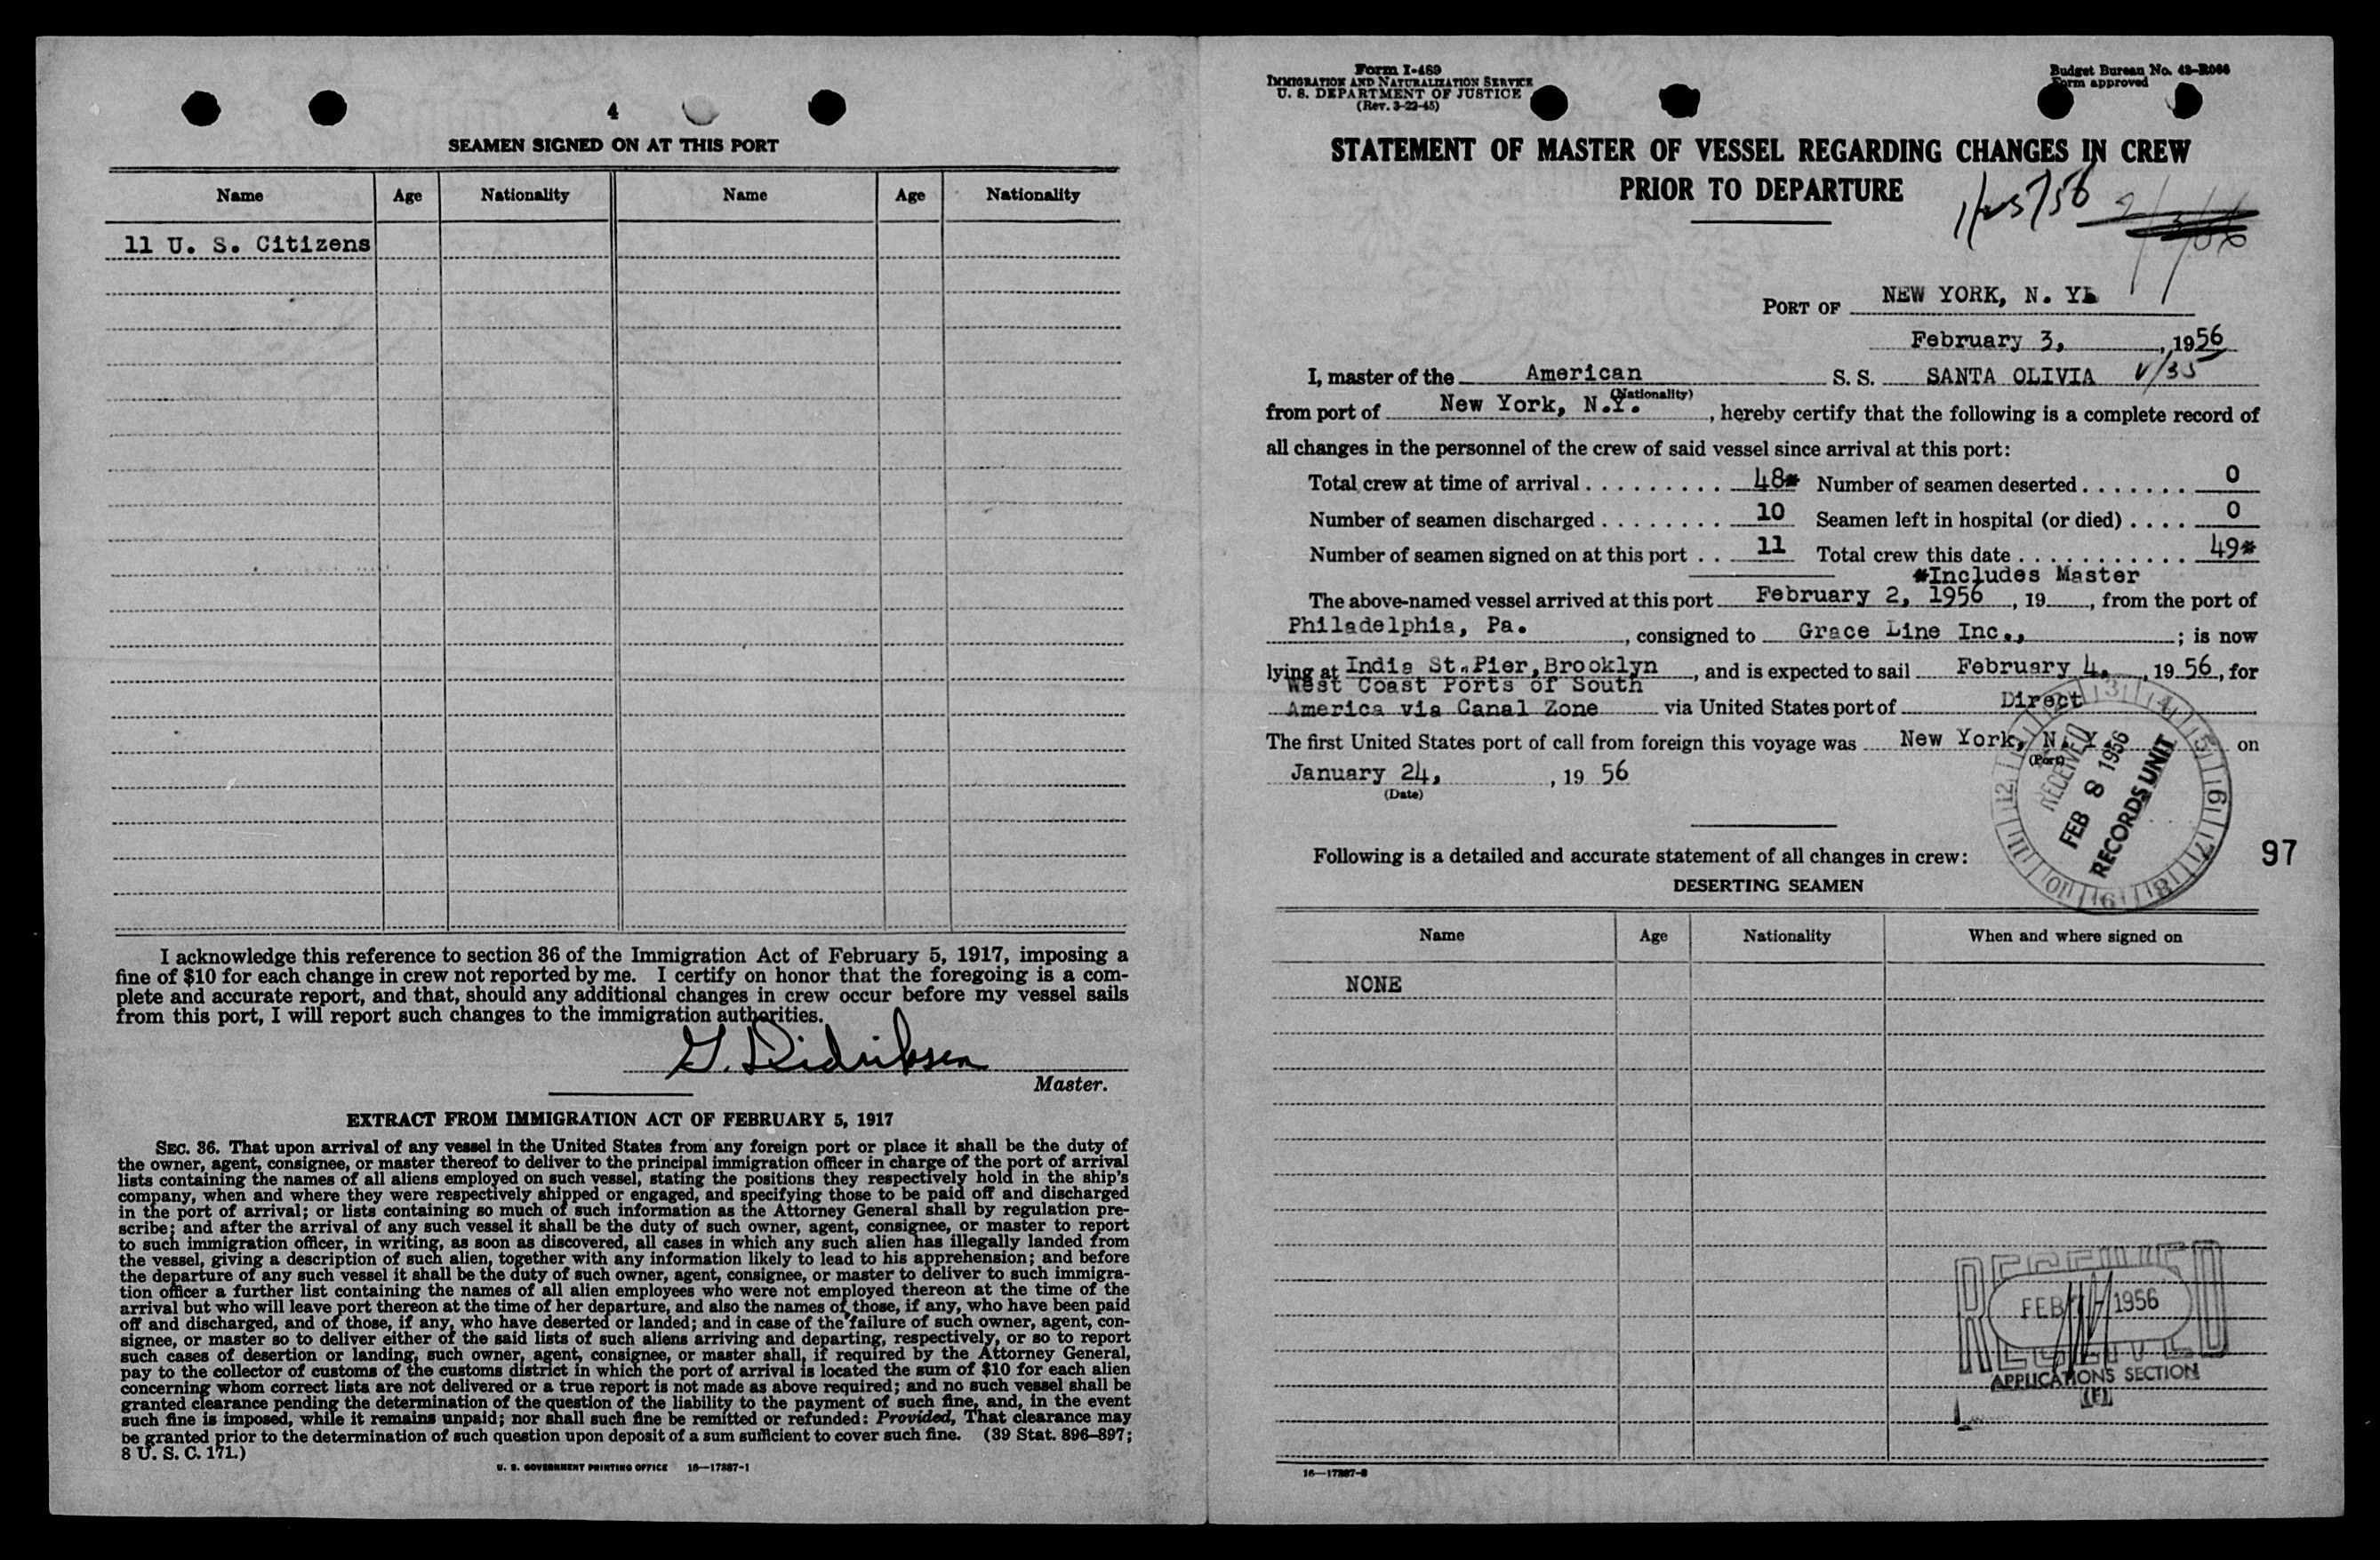 4
SEAMEN SIGNED ON AT THIS PORT
Name Age Nationality Name Age Nationality
11 U. S. Citizens
I acknowledge this reference to section 36 of the Immigration Act of February 5, 1917, imposing a
fine of $10 for each change in crew not reported by me. I certify on honor that the foregoing is a com-
plete and accurate report, and that, should any additional changes in crew occur before my vessel sails
from this port, I will report such changes to the immigration authorities.
G. Didriksen
Master.
EXTRACT FROM IMMIGRATION ACT OF FEBRUARY 5, 1917
SEC. 36. That upon arrival of any vessel in the United States from any foreign port or place it shall be the duty of
the owner, agent, consignee, or master thereof to deliver to the principal immigration officer in charge of the port of arrival
lists containing the names of all aliens employed on such vessel, stating the positions they respectively hold in the ship's
company, when and where they were respectively shipped or engaged, and specifying those to be paid off and discharged
in the port of arrival; or lists containing so much of such information as the Attorney General shall by regulation pre-
scribe; and after the arrival of any such vessel it shall be the duty of such owner, agent, consignee, or master to report
to such immigration officer, in writing, as soon as discovered, all cases in which any such alien has illegally landed from
the vessel, giving a description of such alien, together with any information likely to lead to his apprehension; and before
the departure of any such vessel it shall be the duty of such owner, agent, consignee, or master to deliver to such immigra-
tion officer a further list containing the names of all alien employees who were not employed thereon at the time of the
arrival but who will leave port thereon at the time of her departure, and also the names of those, if any, who have been paid
off and discharged, and of those, if any, who have deserted or landed; and in case of the failure of such owner, agent, con-
signee, or master so to deliver either of the said lists of such aliens arriving and departing, respectively, or so to report
such cases of desertion or landing, such owner, agent, consignee, or master shall, if required by the Attorney General,
pay to the collector of customs of the customs district in which the port of arrival is located the sum of $10 for each alien
concerning whom correct lists are not delivered or a true report is not made as above required; and no such vessel shall be
granted clearance pending the determination of the question of the liability to the payment of such fine, and, in the event
such fine is imposed, while it remains unpaid; nor shall such fine be remitted or refunded: Provided, That clearance may
be granted prior to the determination of such question upon deposit of a sum sufficient to cover such fine. (39 Stat. 896-897;
8 U. S. C. 171.)
U. S. GOVERNMENT PRINTING OFFICE 16—17387-1
Form I-489
IMMIGRATION AND NATURALIZATION SERVICE
U. S. DEPARTMENT OF JUSTICE
(Rev. 3-22-45)
Budget Bureau No. 43-R066
Form approved
STATEMENT OF MASTER OF VESSEL REGARDING CHANGES IN CREW
PRIOR TO DEPARTURE
PORT OF NEW YORK, N. Y.
February 3, , 1956
I, master of the American S. S. SANTA OLIVIA V/35
(Nationality)
from port of New York, N.Y. , hereby certify that the following is a complete record of
all changes in the personnel of the crew of said vessel since arrival at this port:
Total crew at time of arrival . . . . . . . . . . 48* Number of seamen deserted . . . . . . . 0
Number of seamen discharged . . . . . . . . 10 Seamen left in hospital (or died) . . . . 0
Number of seamen signed on at this port . . 11 Total crew this date . . . . . . . . . . . . 49*
*Includes Master
The above-named vessel arrived at this port February 2, 1956 , 19 , from the port of
Philadelphia, Pa. , consigned to Grace Line Inc., ; is now
lying at India St. Pier, Brooklyn , and is expected to sail February 4, , 19 56 , for
West Coast Ports of South
America via Canal Zone via United States port of Direct
The first United States port of call from foreign this voyage was New York, N. Y. on
(Port)
January 24, , 19 56
(Date)
RECEIVED
FEB 8 1956
RECORDS UNIT
97
Following is a detailed and accurate statement of all changes in crew:
DESERTING SEAMEN
Name Age Nationality When and where signed on
NONE
RECEIVED
FEB 1956
APPLICATIONS SECTION
(E)
16—17387-2